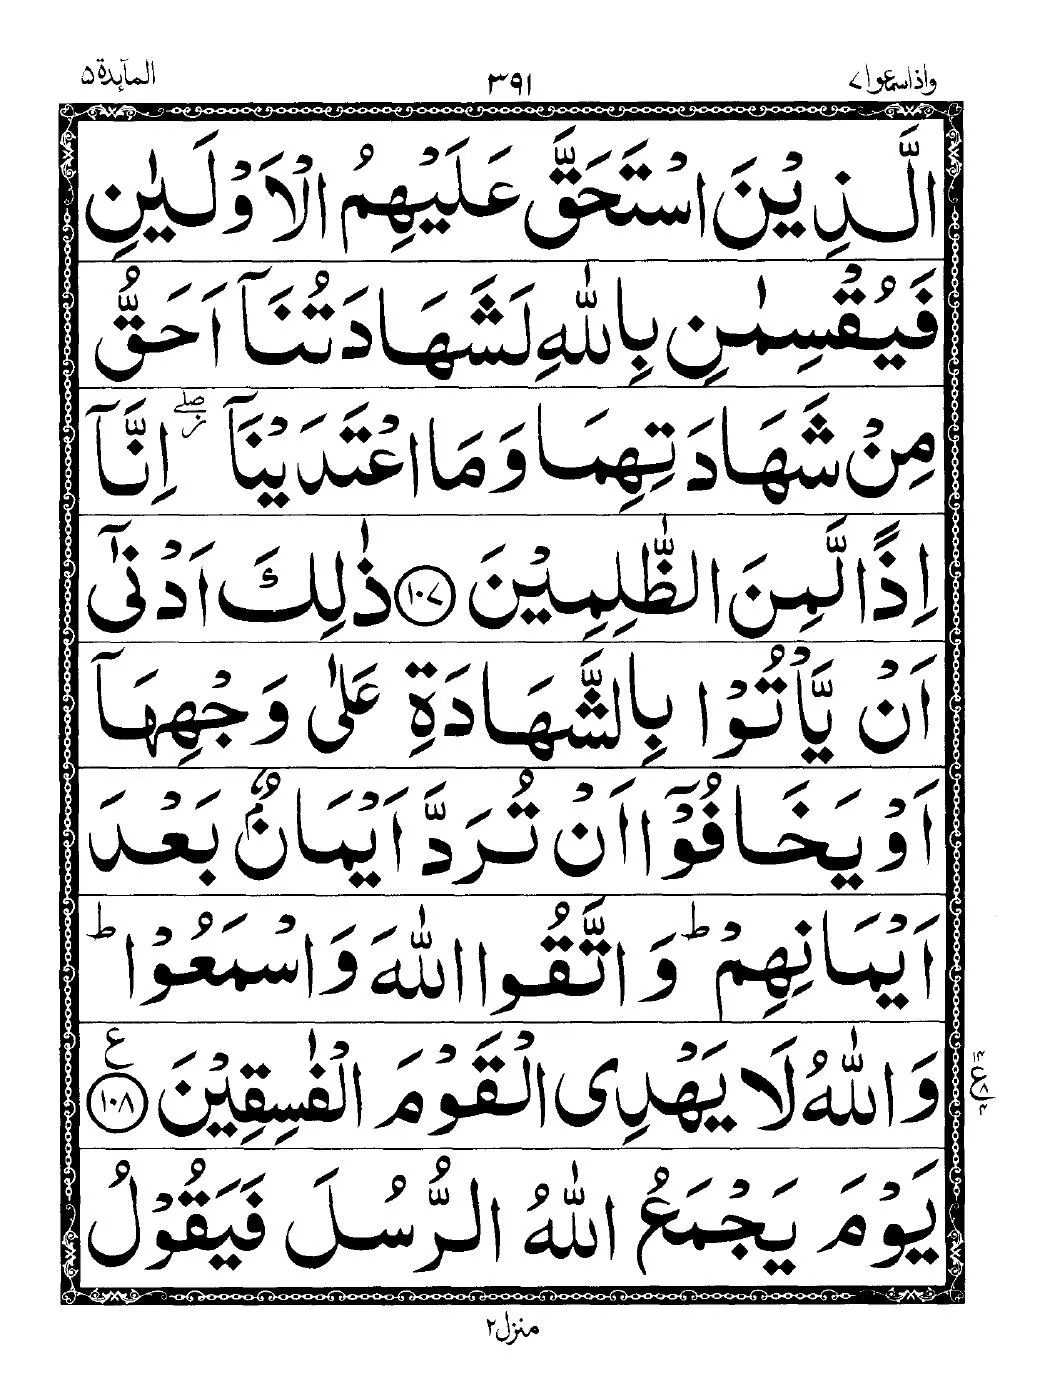 واذاسمعوا ٧
٣٩١
المآىٕدة ٥
الَّذِيْنَ اسْتَحَقَّ عَلَيْهِمُ الْاَوْلَيٰنِ
فَيُقْسِمٰنِ بِاللّٰهِ لَشَهَادَتُنَاۤ اَحَقُّ
مِنْ شَهَادَتِهِمَا وَمَا اعْتَدَيْنَاۤ ۖز اِنَّاۤ
اِذًا لَّمِنَ الظّٰلِمِيْنَ ۝١٠٧ ذٰلِكَ اَدْنٰۤى
اَنْ يَّاْتُوْا بِالشَّهَادَةِ عَلٰى وَجْهِهَاۤ
اَوْ يَخَافُوْۤا اَنْ تُرَدَّ اَيْمَانٌۢ بَعْدَ
اَيْمَانِهِمْ ؕ وَاتَّقُوا اللّٰهَ وَاسْمَعُوْا ؕ
وَاللّٰهُ لَا يَهْدِى الْقَوْمَ الْفٰسِقِيْنَ ۝١٠٨ ع
يَوْمَ يَجْمَعُ اللّٰهُ الرُّسُلَ فَيَقُوْلُ
١٤
ع ٨
٤
منزل ٢